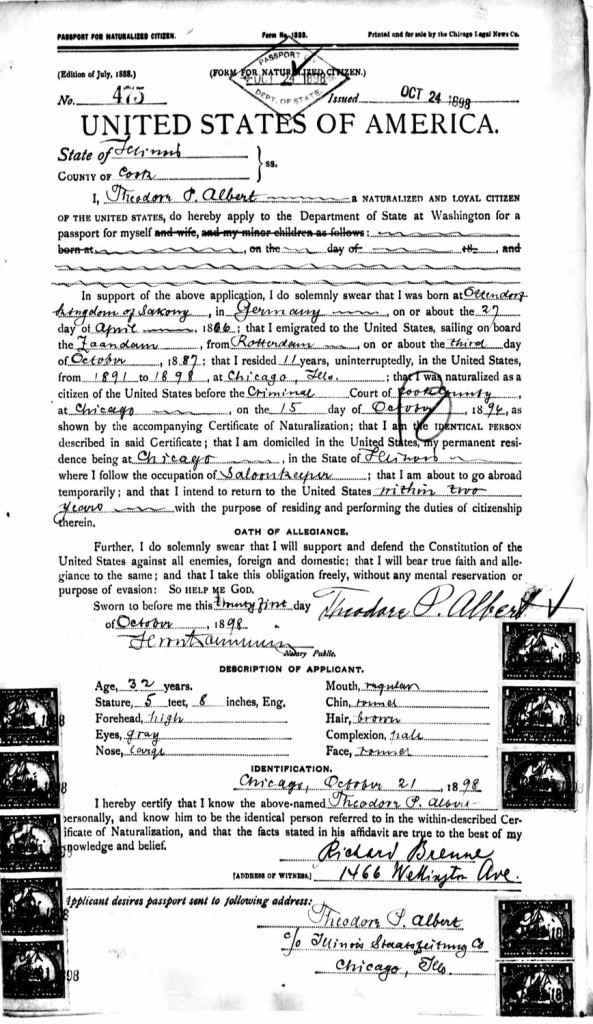 PASSPORT FOR NATURALIZED CITIZEN. Form No. 1888. Printed and for sale by the Chicago Legal News Co.
(Edition of July, 1888.) (FORM FOR NATURALIZED CITIZEN.)
PASSPORT
OCT 24 1898
DEPT. OF STATE.
No. 475 Issued OCT 24 1898
UNITED STATES OF AMERICA.
State of Illinois
COUNTY OF Cook } ss.
I, Theodore P. Albert a NATURALIZED AND LOYAL CITIZEN
OF THE UNITED STATES, do hereby apply to the Department of State at Washington for a
passport for myself and wife, and my minor children as follows:
born at , on the day of 18 , and
In support of the above application, I do solemnly swear that I was born at Ottendorf
Kingdom of Saxony, in Germany, on or about the 27
day of April, 1866; that I emigrated to the United States, sailing on board
the Zaandam, from Rotterdam, on or about the third day
of October, 1887; that I resided 11 years, uninterruptedly, in the United States,
from 1891 to 1898, at Chicago, Ills.; that I was naturalized as a
citizen of the United States before the Criminal Court of Cook County,
at Chicago, on the 15 day of October, 1896, as
shown by the accompanying Certificate of Naturalization; that I am the IDENTICAL PERSON
described in said Certificate; that I am domiciled in the United States, my permanent resi-
dence being at Chicago, in the State of Illinois
where I follow the occupation of Saloonkeeper; that I am about to go abroad
temporarily; and that I intend to return to the United States within two
years with the purpose of residing and performing the duties of citizenship
therein.
OATH OF ALLEGIANCE.
Further, I do solemnly swear that I will support and defend the Constitution of the
United States against all enemies, foreign and domestic; that I will bear true faith and alle-
giance to the same; and that I take this obligation freely, without any mental reservation or
purpose of evasion: SO HELP ME GOD.
Sworn to before me this twenty first day
Theodore P. Albert
of October, 1898
Notary Public.
DESCRIPTION OF APPLICANT.
Age, 32 years. Mouth, regular
Stature, 5 feet, 8 inches, Eng. Chin, round
Forehead, high Hair, brown
Eyes, gray Complexion, pale
Nose, large Face, round
IDENTIFICATION.
Chicago, October 21, 1898
I hereby certify that I know the above-named Theodore P. Albert
personally, and know him to be the identical person referred to in the within-described Cer-
ificate of Naturalization, and that the facts stated in his affidavit are true to the best of my
knowledge and belief.
Richard Brenne
[ADDRESS OF WITNESS.] 1466 Wellington Ave.
Applicant desires passport sent to following address:
Theodore P. Albert
c/o Illinois Staatszeitung Co
Chicago, Ills.